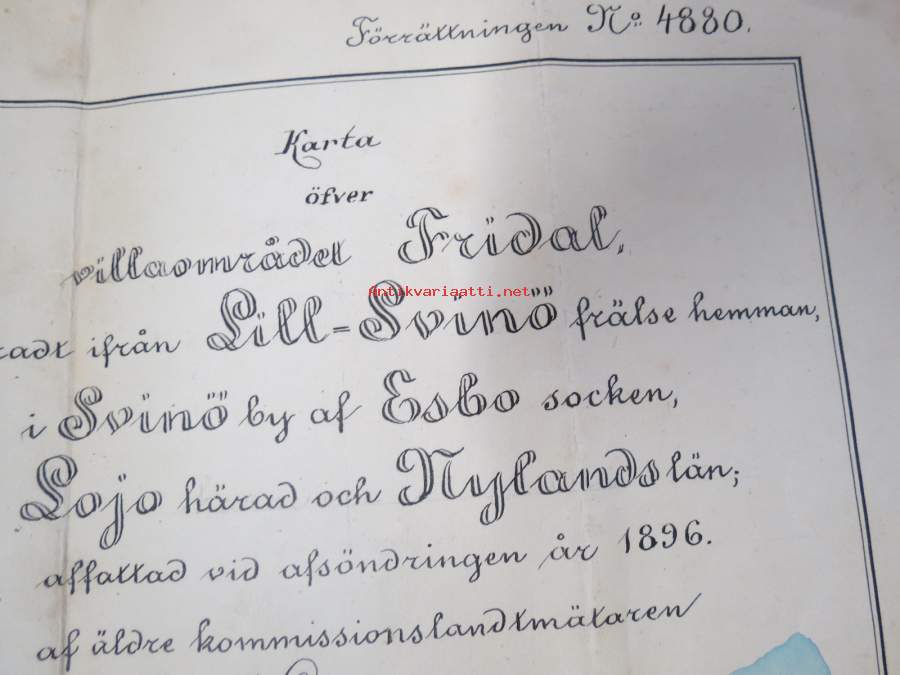 Förrättningen No: 4880.
Karta
öfver
villaområdet Fridal,
Antikvariaatti.net
ifrån Lill-Svinö frälse hemman,
i Svinö by af Esbo socken,
Lojo härad och Nylands län;
affattad vid afsöndringen år 1896.
af äldre kommissionslandtmätaren